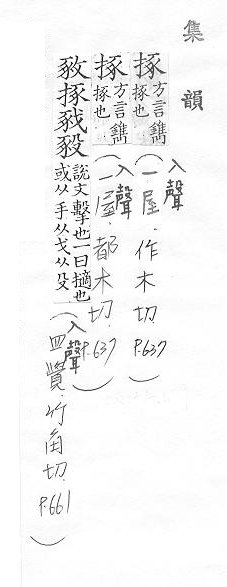 集韻
㧻方言鐫㧻也（入聲一屋．作木切P.637）
㧻方言鐫㧻也（入聲一屋．都木切P.637）
㩁㧻㦵毅說文擊也一曰擿也或从手从戈从殳（入聲四覺．竹角切P.661）